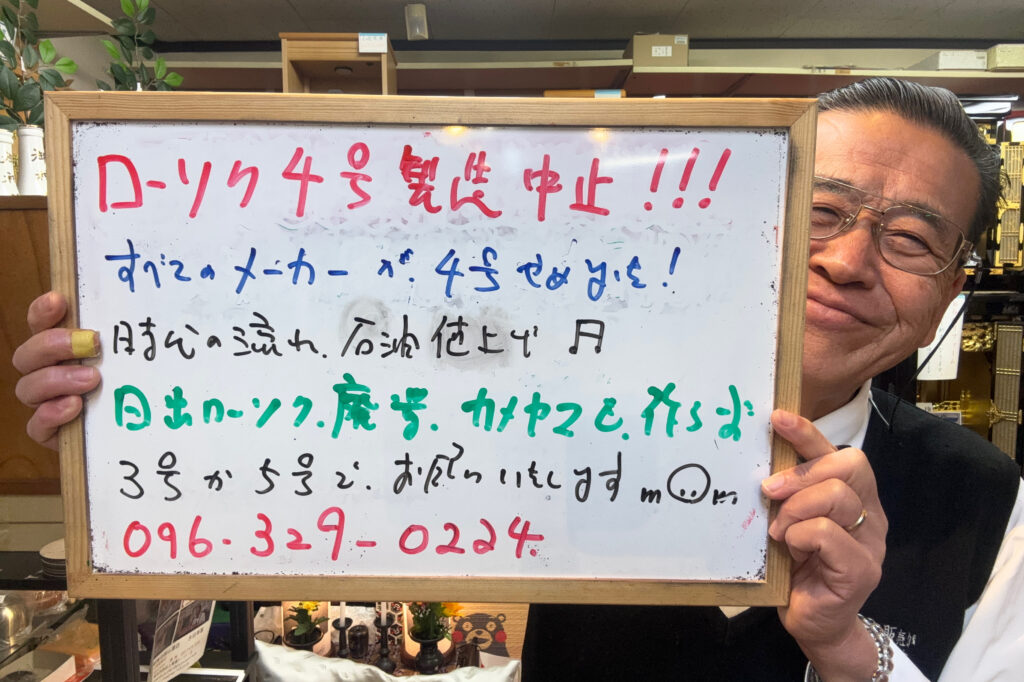 ローソク4号製造中止!!!
すべてのメーカーが、4号やめます!
時代の流れ、石油値上げ 円
日出ローソク、廃業、カメヤマも、作らず
3号か5号で、お願いいたします m(..)m
096-329-0224